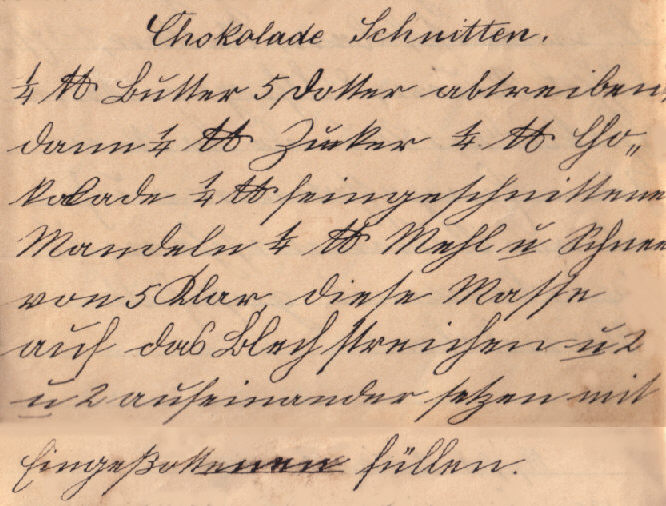 Chokolade Schnitten.
¼ ℔ Butter 5 Dotter abtreiben,
dann ¼ ℔ Zucker ¼ ℔ Cho„
kolade ¼ ℔ feingeschnittene
Mandeln ¼ ℔ Mehl u Schnee
von 5 Klar, diese Masse
auf das Blech streichen u 2
u 2 aufeinander setzen mit
Eingesottenen füllen.